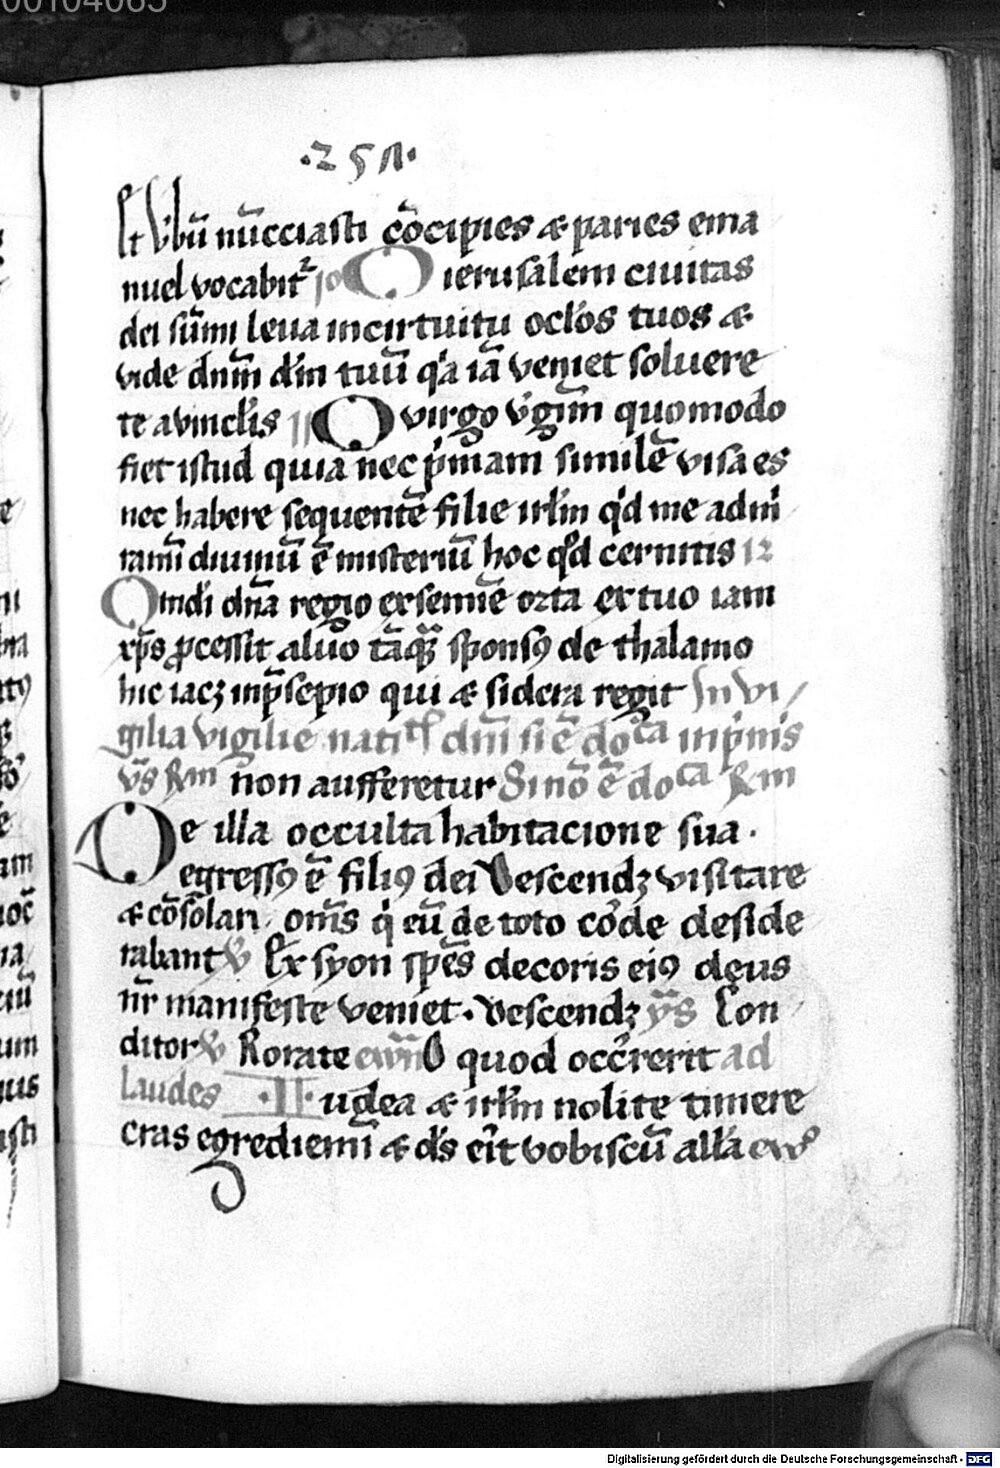 00104065
·251·
et vbū nūcciasti cōcipies et paries ema
nuel vocabit᷑ 10 O ierusalem ciuitas
dei sūmi leua in cirtuitu ocl'os tuos et
vide dnm̄ d'm tuū q'a iā veniet soluere
te a vincl'is 11 O virgo v'gim̄ quomodo
fiet istud quia nec p'mam similē visa es
nec habere sequentē filie irl'm q'd me admi
ramī diuinū ē misteriū hoc qd' cernitis 12
O mūdi dn̄a regio ex semīe orta ex tuo iam
xp̄s ꝓcessit aluo tāqꝫ sponsꝰ de thalamo
hic iacꝫ in p̄sepio qui et sidera regit In vi
gilia vigilie nati dn̄i si ē doca in p'mis
v̄s Rm non aufferetur Si nō ē doca Rm
De illa occulta habitacione sua ·
egressꝰ ē filiꝰ dei Descendꝫ visitare
et cōsolari om̄s q' eū de toto corde deside
rabant v Ex syon sp̄es decoris eiꝰ deus
nr̄ manifeste veniet · Descendꝫ ys Con
ditor v Rorate ewn̄ O quod occ'rerit ad
laudes · II · udea et irl'm nolite timere
cras egrediemī et d's erit vobiscū all'a ewꝰ
Digitalisierung gefördert durch die Deutsche Forschungsgemeinschaft - DFG